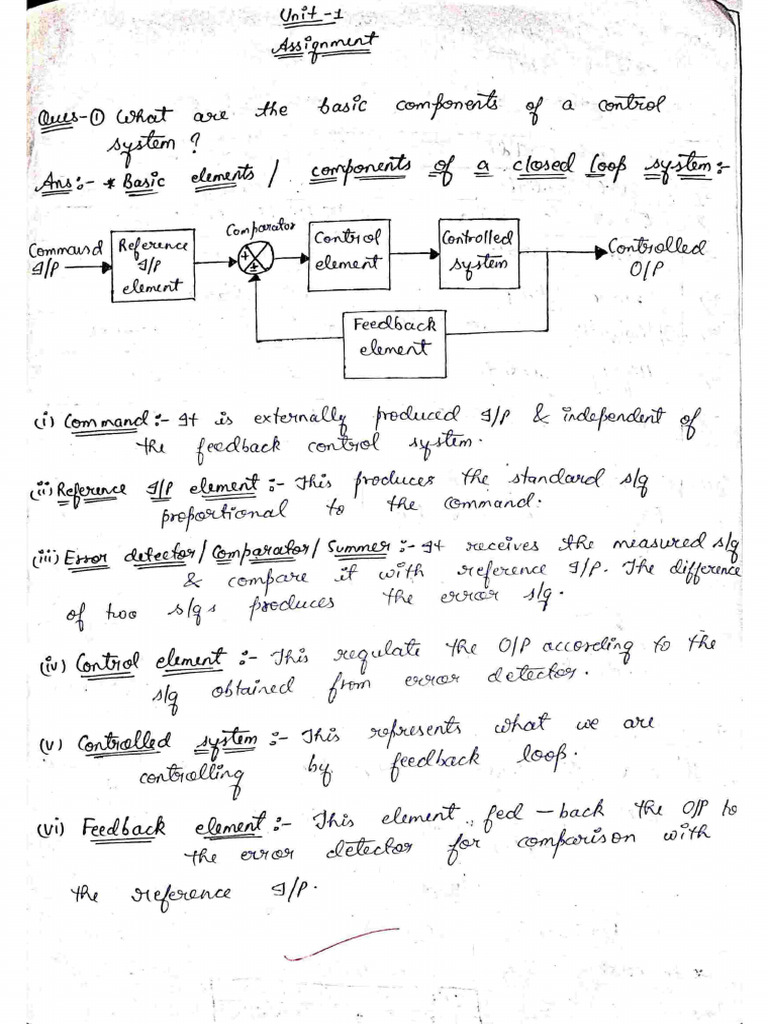 Unit-1
Assignment
Ques-① What are the basic components of a control
system?
Ans:- * Basic elements / components of a closed loop system:-
Command
I/P
Reference
I/P
element
Comparator
+
±
Control
element
Controlled
system
Controlled
O/P
Feedback
element
(i) Command:- It is externally produced I/P & independent of
the feedback control system.
(ii) Reference I/P element:- This produces the standard s/g
proportional to the command.
(iii) Error detector/Comparator/Summer:- It receives the measured s/g
& compare it with reference I/P. The difference
of two s/gs produces the error s/g.
(iv) Control element:- This regulate the O/P according to the
s/g obtained from error detector.
(v) Controlled system:- This represents what we are
controlling by feedback loop.
(vi) Feedback element:- This element, fed-back the O/P to
the error detector for comparison with
the reference I/P.